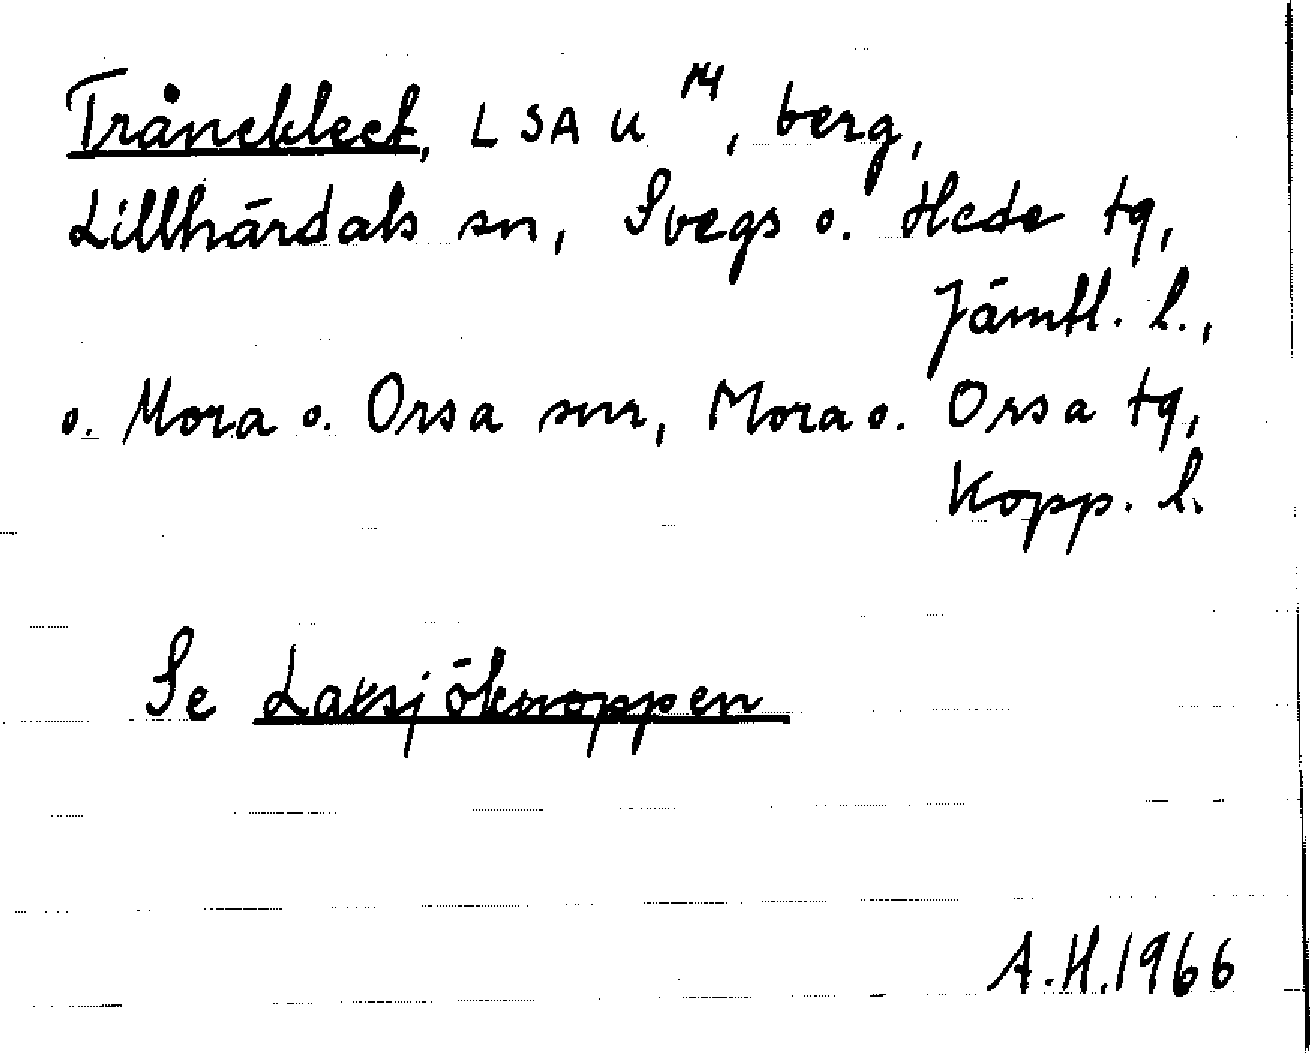 Trånekleck, LSA u 14, berg,
Lillhärdals sn, Svegs o. Hede tg,
Jämtl. l.,
o. Mora o. Orsa snr, Mora o. Orsa tg,
Kopp. l.
Se
A.H. 1966